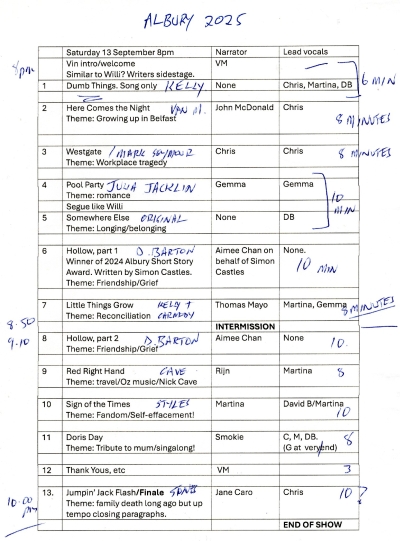 ALBURY 2025
Saturday 13 September 8pm Narrator Lead vocals
8pm Vin intro/welcome VM
Similar to Willi? Writers sidestage.
1 Dumb Things. Song only KELLY None Chris, Martina, DB 6 MIN
2 Here Comes the Night VAN M. John McDonald Chris
Theme: Growing up in Belfast 8 MINUTES
3 Westgate / MARK SEYMOUR Chris Chris 8 MINUTES
Theme: Workplace tragedy
4 Pool Party JULIA JACKLIN Gemma Gemma
Theme: romance 10 MIN
Segue like Willi
5 Somewhere Else ORIGINAL None DB
Theme: Longing/belonging
6 Hollow, part 1 D. BARTON Aimee Chan on None.
Winner of 2024 Albury Short Story behalf of Simon 10 MIN
Award. Written by Simon Castles. Castles
Theme: Friendship/Grief
7 Little Things Grow KELLY + Thomas Mayo Martina, Gemma 8 MINUTES
Theme: Reconciliation CARMODY
8.50 INTERMISSION
9.10 8 Hollow, part 2 D. BARTON Aimee Chan None 10.
Theme: Friendship/Grief
9 Red Right Hand CAVE Rijn Martina 8
Theme: travel/Oz music/Nick Cave
10 Sign of the Times STYLES Martina David B/Martina
Theme: Fandom/Self-effacement! 10
11 Doris Day Smokie C, M, DB. 8
Theme: Tribute to mum/singalong! (G at very end)
12 Thank Yous, etc VM 3
13. Jumpin' Jack Flash/Finale STONES Jane Caro Chris 10?
10.00 pm Theme: family death long ago but up
tempo closing paragraphs.
END OF SHOW